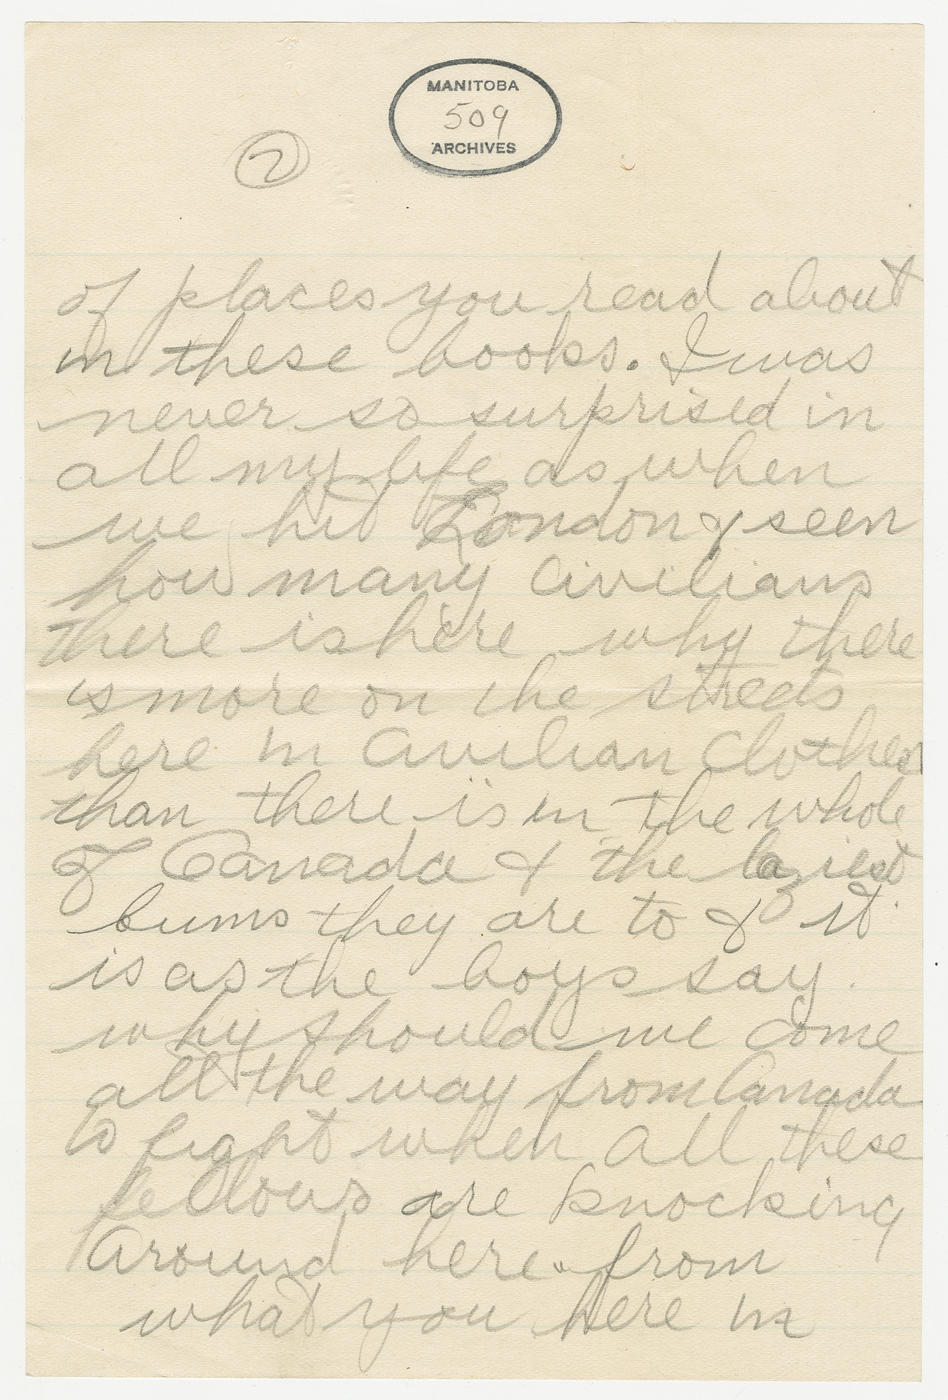 MANITOBA
509
ARCHIVES
2
of places you read about
in these books. I was
never so surprised in
all my life as when
we hit London & seen
how many civilians
there is here why there
is more on the streets
here in Civilian Clothes
than there is in the whole
of Canada & the laziest
bums they are to & it
is as the boys say.
why should we come
all the way from Canada
to fight when all these
fellows are knocking
around here. from
what you here in